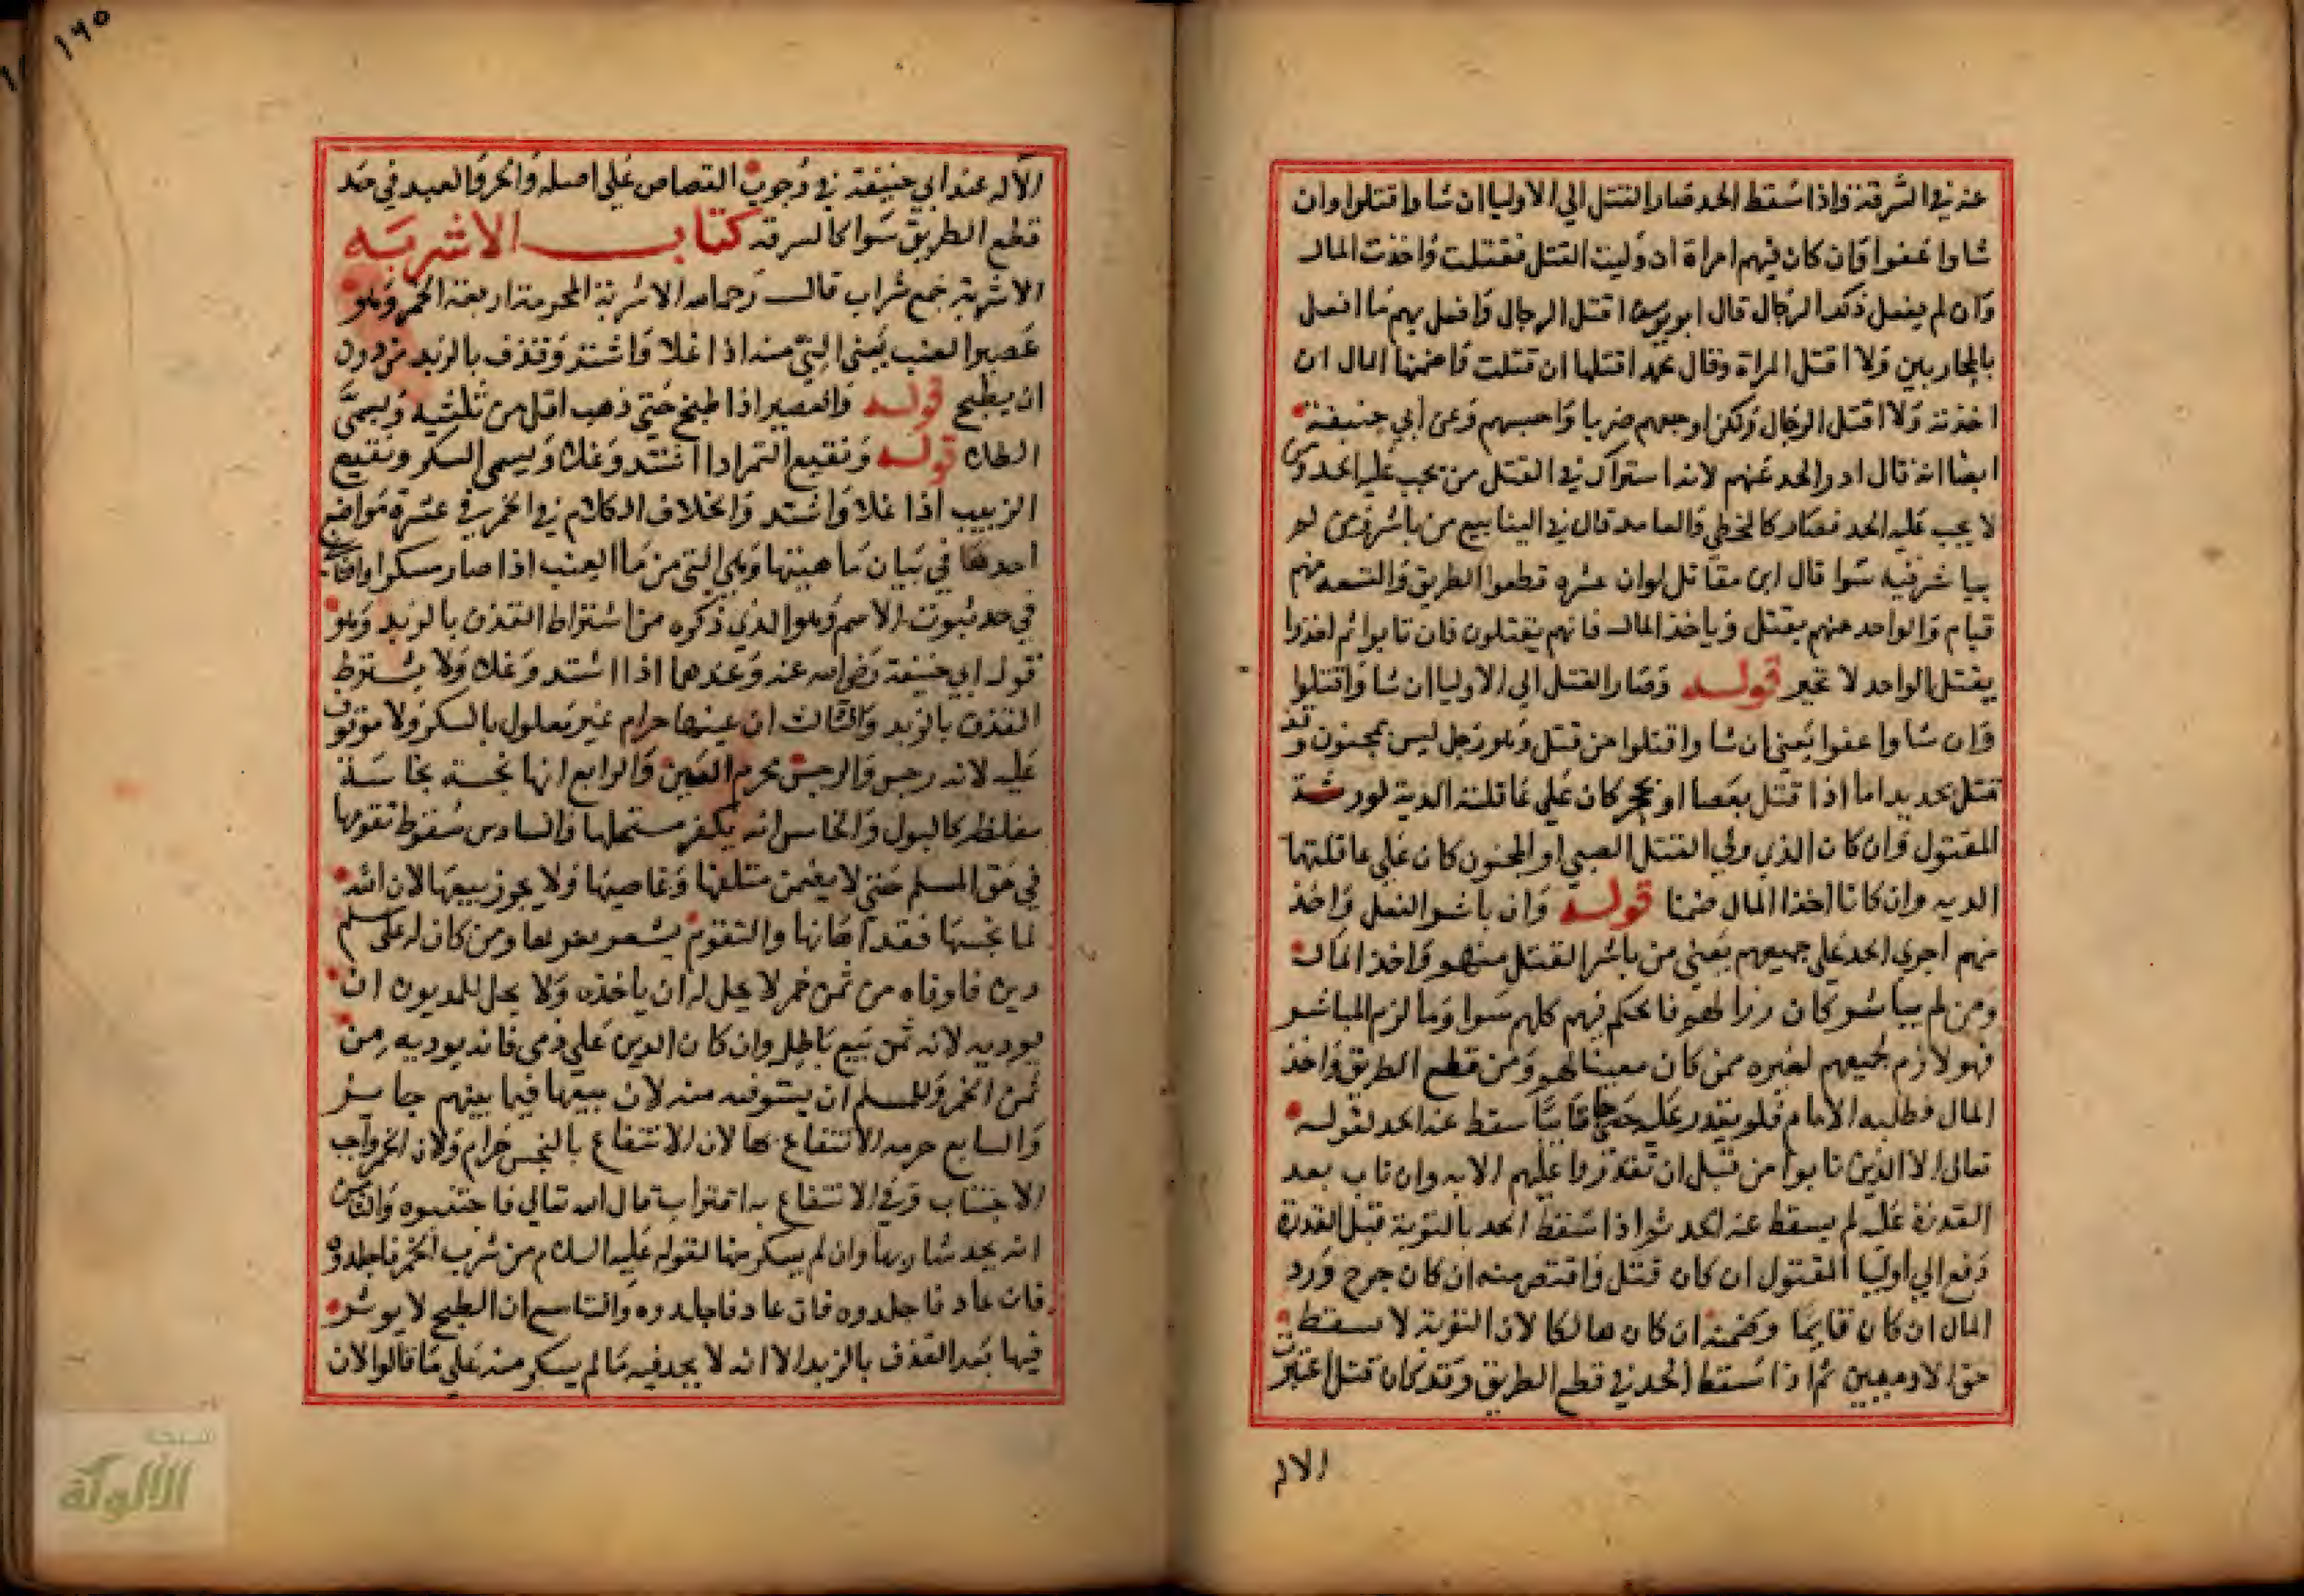 عنه في السرقة واذا سقط الحد صار القتل الي الاوليا ان شاوا قتلوا وان
شاوا عفوا وان كان فيهم امراة ان وليت القتل فقتلت واخذت المال
وان لم يفعل ذلك الرجال قال ابو يوسف اقتل الرجال وافعل بهم ما افعل
بالمحاربين ولا اقتل المراة وقال محمد اقتلها ان قتلت واضمنها المال ان
اخذته ولا اقتل الرجال ولكن اوجعهم ضربا واحبسهم وعن ابي حنيفة
ايضا انه قال ادرا الحد عنهم لانه اشتراك في القتل من يجب عليه الحد ومن
لا يجب عليه الحد فصار كالمخطي والعامد قال في الينابيع من باشر ومن لم
يباشر فيه سوا قال ابن مقاتل لو ان عشرة قطعوا الطريق والتسعه منهم
قيام والواحد منهم يقتل وياخذ المال فانهم يقتلون فان تابوا ثم اخذوا
يقتل الواحد لا غير قوله وصار القتل الي الاوليا ان شاوا قتلوا
وان شاوا عفوا يعني ان شاوا قتلوا من قتل وهو رجل ليس بمجنون وقد
قتل بحديد اما اذا قتل بعصا او بحجر كان علي عاقلته الدية لورثة
المقتول وان كان الذي ولي القتل الصبي او المجنون كان علي عاقلتهما
الديه وان كانا اخذا المال ضمنا قوله وان باشر الفعل واحد
منهم اجري الحد علي جميعهم يعني من باشر القتل منهم واخذ المال
ومن لم يباشر كان ردا لهم فالحكم فيهم كلهم سوا وما لزم المباشر
فهو لازم لجميعهم لغيره ممن كان معينا لهم ومن قطع الطريق واخذ
المال فطلبه الامام فلم يقدر عليه حتي جا تايبا سقط عنه الحد لقوله
تعالي الا الذين تابوا من قبل ان تقدروا عليهم الايه وان تاب بعد
القدرة عليه لم يسقط عنه الحد ثم اذا سقط الحد بالتوبة قبل القدرة
دفع الي اوليا المقتول ان كان قتل واقتص منه ان كان جرح ورد
المال ان كان قايما وضمنه ان كان هالكا لان التوبة لا تسقط
حق الادميين ثم اذا سقط الحد في قطع الطريق وقد كان قتل اعتبرت
الاله
١٦٥
الاله عند ابي حنيفة في وجوب القصاص علي اصله والحر والعبد في حد
قطع الطريق سوا كالسرقة كتاب الاشربه
الاشربة جمع شراب قال رحمه الله الاشربة المحرمة اربعة الخمر وهو
عصير العنب يعني الني منه اذا غلا واشتد وقذف بالزبد من دون
ان يطبخ قوله والعصير اذا طبخ حتي ذهب اقل من ثلثيه ويسمي
الطلا قوله ونقيع التمر اذا اشتد وغلا ويسمي السكر ونقيع
الزبيب اذا غلا واشتد والخلاف الكلام في الخمر في عشرة مواضع
احدها في بيان ماهيتها وهي التي من ما العنب اذا صار مسكرا والثاني
في حد ثبوت الاسم وهو الذي ذكره من اشتراط القذف بالزبد وهو
قول ابي حنيفة رضي الله عنه وعندهما اذا اشتد وغلا ولا يشترط
القذف بالزبد والثالث ان عينها حرام غير معلول بالسكر ولا موقوف
عليه لانه رجس والرجس محرم العين والرابع انها نجسة نجاسة
مغلظة كالبول والخامس انه يكفر مستحلها والسادس سقوط تقومها
في حق المسلم حتي لا يضمن متلفها وغاصبها ولا يجوز بيعها لان الله
لما نجسها فقد اهانها والتقوم يشعر بعزتها ومن كان له علي مسلم
دين فاوفاه من ثمن خمر لا يحل له ان ياخذه ولا يحل للمديون ان
يوديه لانه ثمن بيع باطل وان كان الدين علي ذمي فانه يوديه من
ثمن الخمر وللمسلم ان يستوفيه منه لان بيعها فيما بينهم جايز
والسابع حرمه الانتفاع بها لان الانتفاع بالنجس حرام ولان الخمر واجب
الاجتناب وفي الانتفاع به اقتراب قال الله تعالي فاجتنبوه والثامن
انه يحد شاربها وان لم يسكر منها لقوله عليه السلام من شرب الخمر فاجلدوه
فان عاد فاجلدوه فان عاد فاجلدوه والتاسع ان الطبخ لا يوثر
فيها بعد القذف بالزبد الا انه لا يحد فيه ما لم يسكر منه علي ما قالوا لان
شبكة
الألوكة